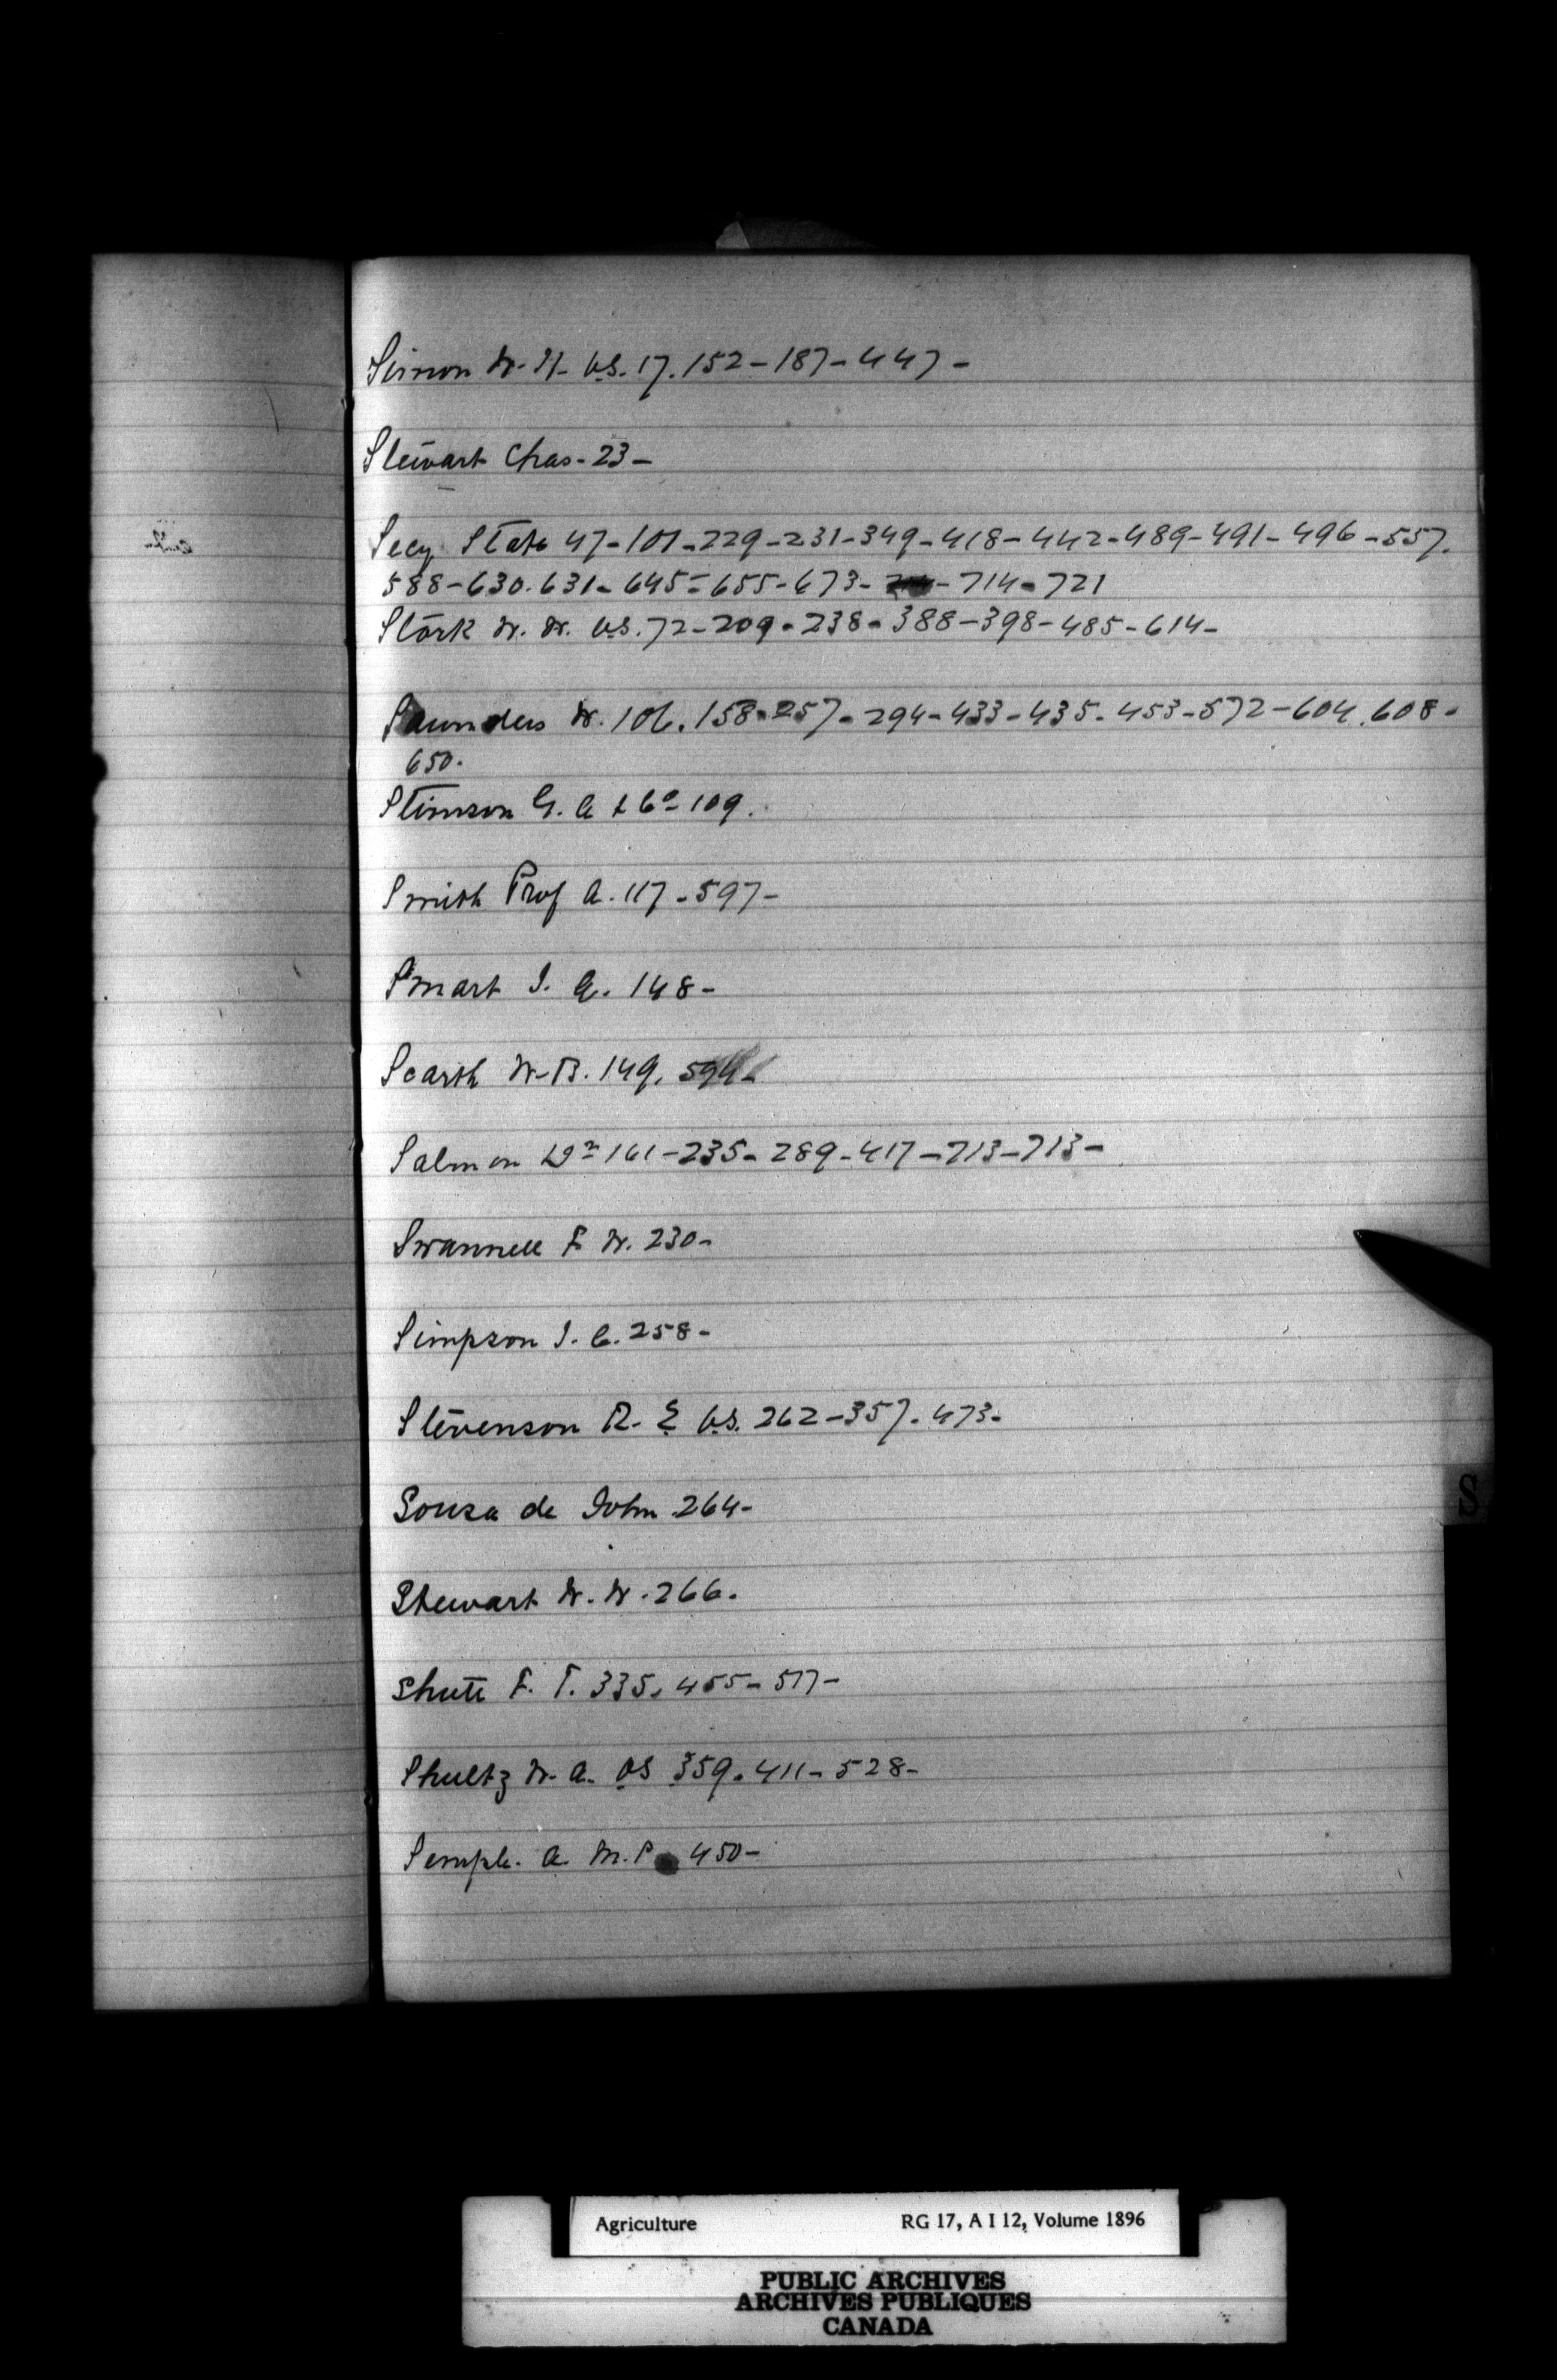 Simon W. H. V.S. 17. 152 - 187 - 447 -
Stewart Chas - 23 -
Secy State 47 - 101 - 229 - 231 - 349 - 418 - 442 - 489 - 491 - 496 - 557.
588 - 630. 631 - 645 - 655 - 673 - - 714 - 721
Stork W. W. V.S. 72 - 209 - 238 - 388 - 398 - 485 - 614 -
Saunders W. 106. 158 - 257 - 294 - 433 - 435 - 453 - 572 - 604. 608 -
650.
Stimson G. A & Co - 109.
Smith Prof A. 117 - 597 -
Smart J. A. 148 -
Scarth W. B. 149. 594 -
Salmon Dr 161 - 235 - 289 - 417 - 713 - 713 -
Swannell F. W. 230 -
Simpson J. C. 258 -
Stevenson R. E V.S. 262 - 357. 473 -
Souza de John 264 -
Stewart W. W. 266.
Shutt F. T. 335. 455 - 517 -
Shultz W. A. V.S 359. 411 - 528 -
Semple. A. M.P 450 -
S
Agriculture RG 17, A I 12, Volume 1896
PUBLIC ARCHIVES
ARCHIVES PUBLIQUES
CANADA